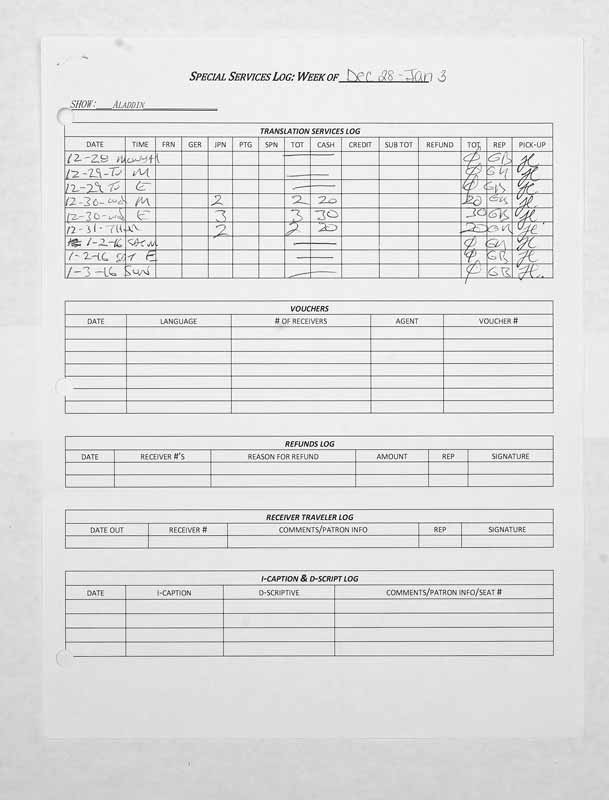 SPECIAL SERVICES LOG: WEEK OF Dec 28 - Jan 3
SHOW: ALADDIN
TRANSLATION SERVICES LOG
DATE TIME FRN GER JPN PTG SPN TOT CASH CREDIT SUB TOT REFUND TOT REP PICK-UP
12-28 GB
12-29-Tu M φ GB
12-29 Tu E φ GB
12-30-wed M 2 2 20 20 GB
12-30-wed E 3 3 30 30 GB
12-31-Thur 2 2 20 20 GB
1-2-16 SAT M φ GB
1-2-16 SAT E φ GB
1-3-16 Sun φ GB
VOUCHERS
DATE LANGUAGE # OF RECEIVERS AGENT VOUCHER #
REFUNDS LOG
DATE RECEIVER #'S REASON FOR REFUND AMOUNT REP SIGNATURE
RECEIVER TRAVELER LOG
DATE OUT RECEIVER # COMMENTS/PATRON INFO REP SIGNATURE
I-CAPTION & D-SCRIPT LOG
DATE I-CAPTION D-SCRIPTIVE COMMENTS/PATRON INFO/SEAT #